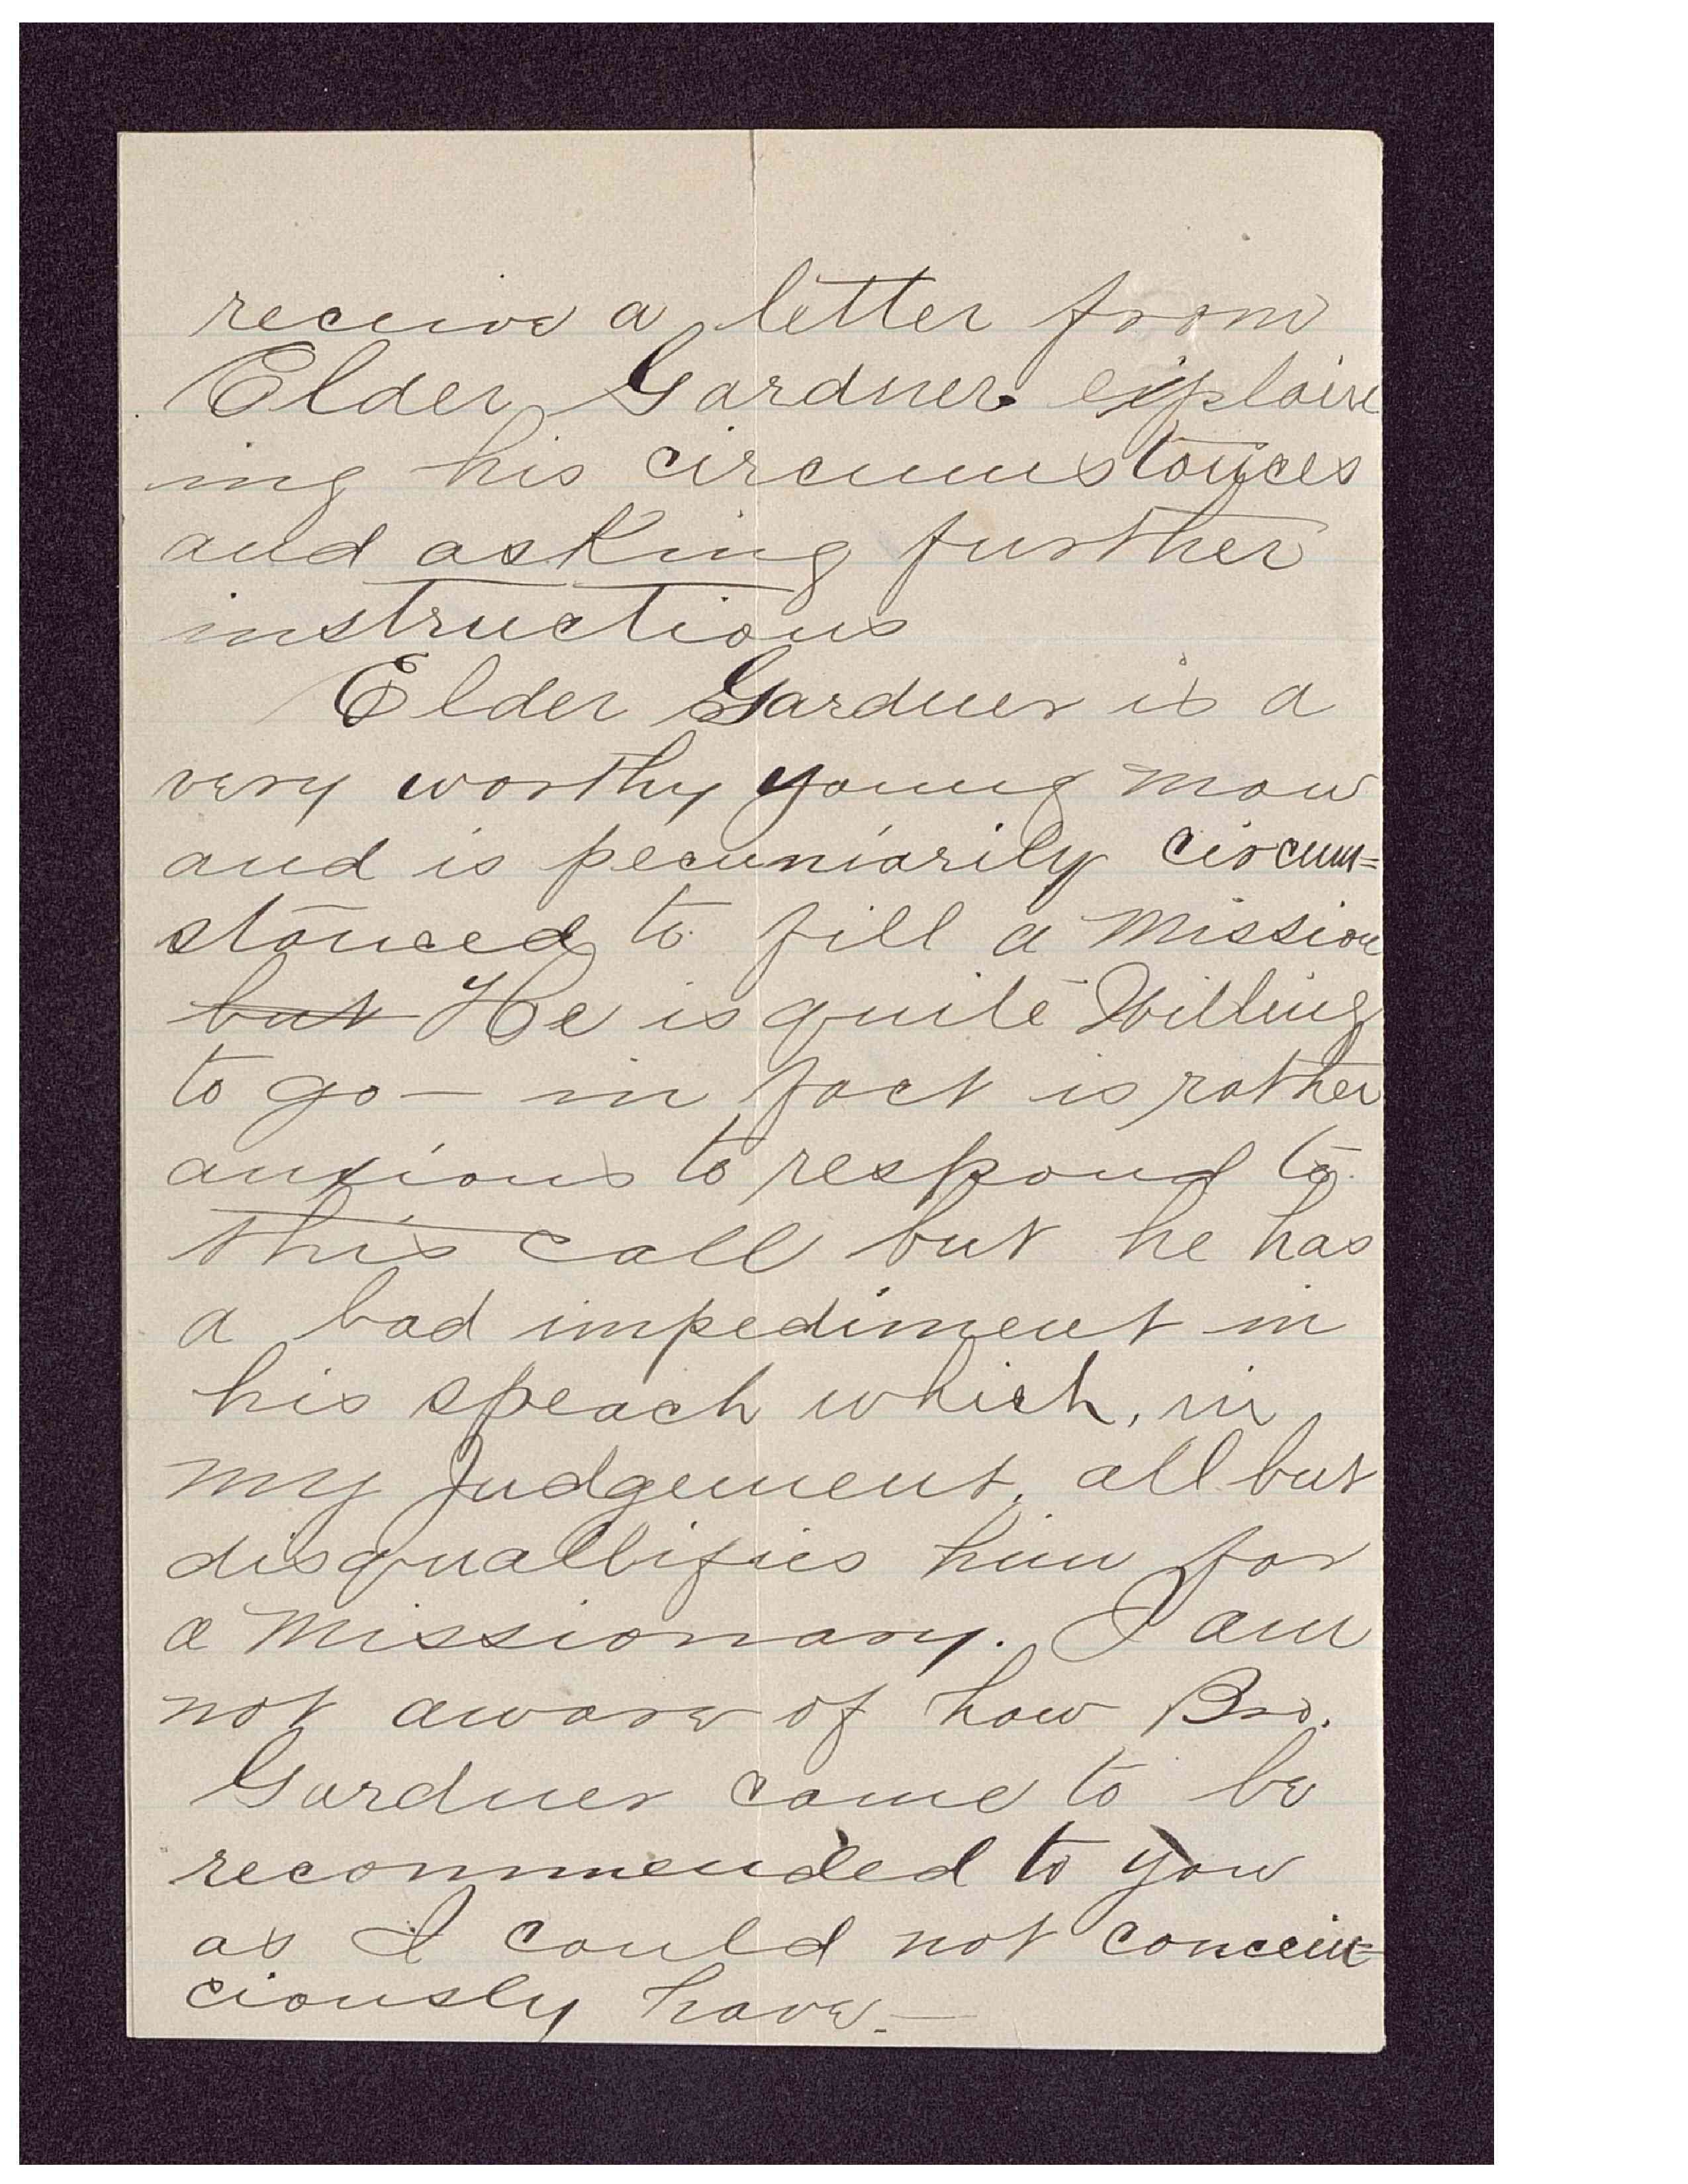 receive a letter from
Elder Gardner explain
ing his circumstances
and asking further
instructions
Elder Gardner is a
very worthy young man
and is pecuniarily circum=
stanced to fill a mission
but He is quite Willing
to go — in fact is rather
anxious to respond to
this call but he has
a bad impediment in
his speach which, in
my Judgement, all but
disquallifies him for
a Missionary. I am
not aware of how Bro.
Gardner came to be
recommended to you
as I could not concein=
ciously have. —